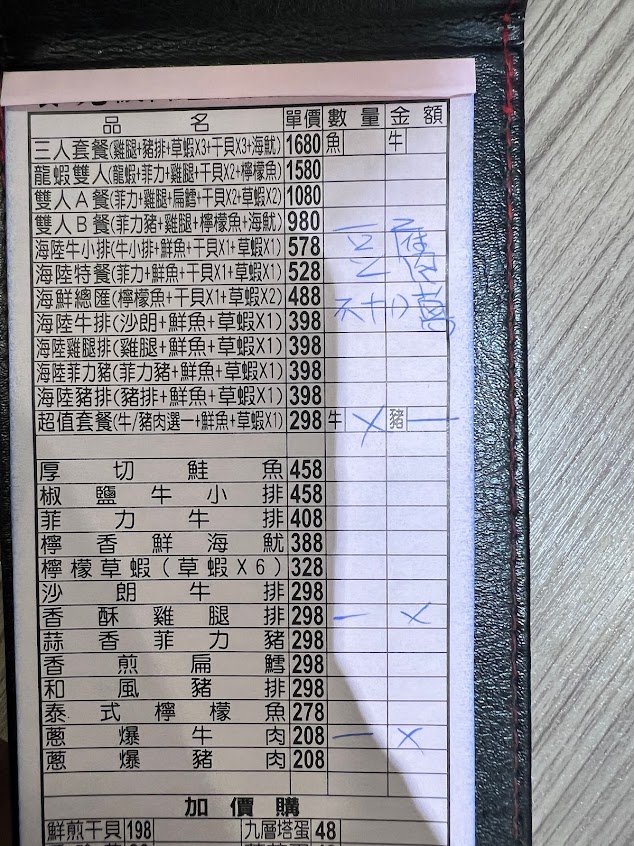 品名 單價 數量 金額
三人套餐(雞腿+豬排+草蝦X3+干貝X3+海魷) 1680 魚 牛
龍蝦雙人(龍蝦+菲力+雞腿+干貝X2+檸檬魚) 1580
雙人A餐(菲力+雞腿+扁鱈+干貝X2+草蝦X2) 1080
雙人B餐(菲力豬+雞腿+檸檬魚+海魷) 980
海陸牛小排(牛小排+鮮魚+干貝X1+草蝦X1) 578
海陸特餐(菲力+鮮魚+干貝X1+草蝦X1) 528
海鮮總匯(檸檬魚+干貝X1+草蝦X2) 488
海陸牛排(沙朗+鮮魚+草蝦X1) 398
海陸雞腿排(雞腿+鮮魚+草蝦X1) 398
海陸菲力豬(菲力豬+鮮魚+草蝦X1) 398
海陸豬排(豬排+鮮魚+草蝦X1) 398
超值套餐(牛/豬肉選一+鮮魚+草蝦X1) 298 牛 X 豬 一
厚切鮭魚 458
椒鹽牛小排 458
菲力牛排 408
檸香鮮海魷 388
檸檬草蝦(草蝦X6) 328
沙朗牛排 298
香酥雞腿排 298 一 X
蒜香菲力豬 298
香煎扁鱈 298
和風豬排 298
泰式檸檬魚 278
蔥爆牛肉 208 一 X
蔥爆豬肉 208
加價購
鮮煎干貝 198 九層塔蛋 48